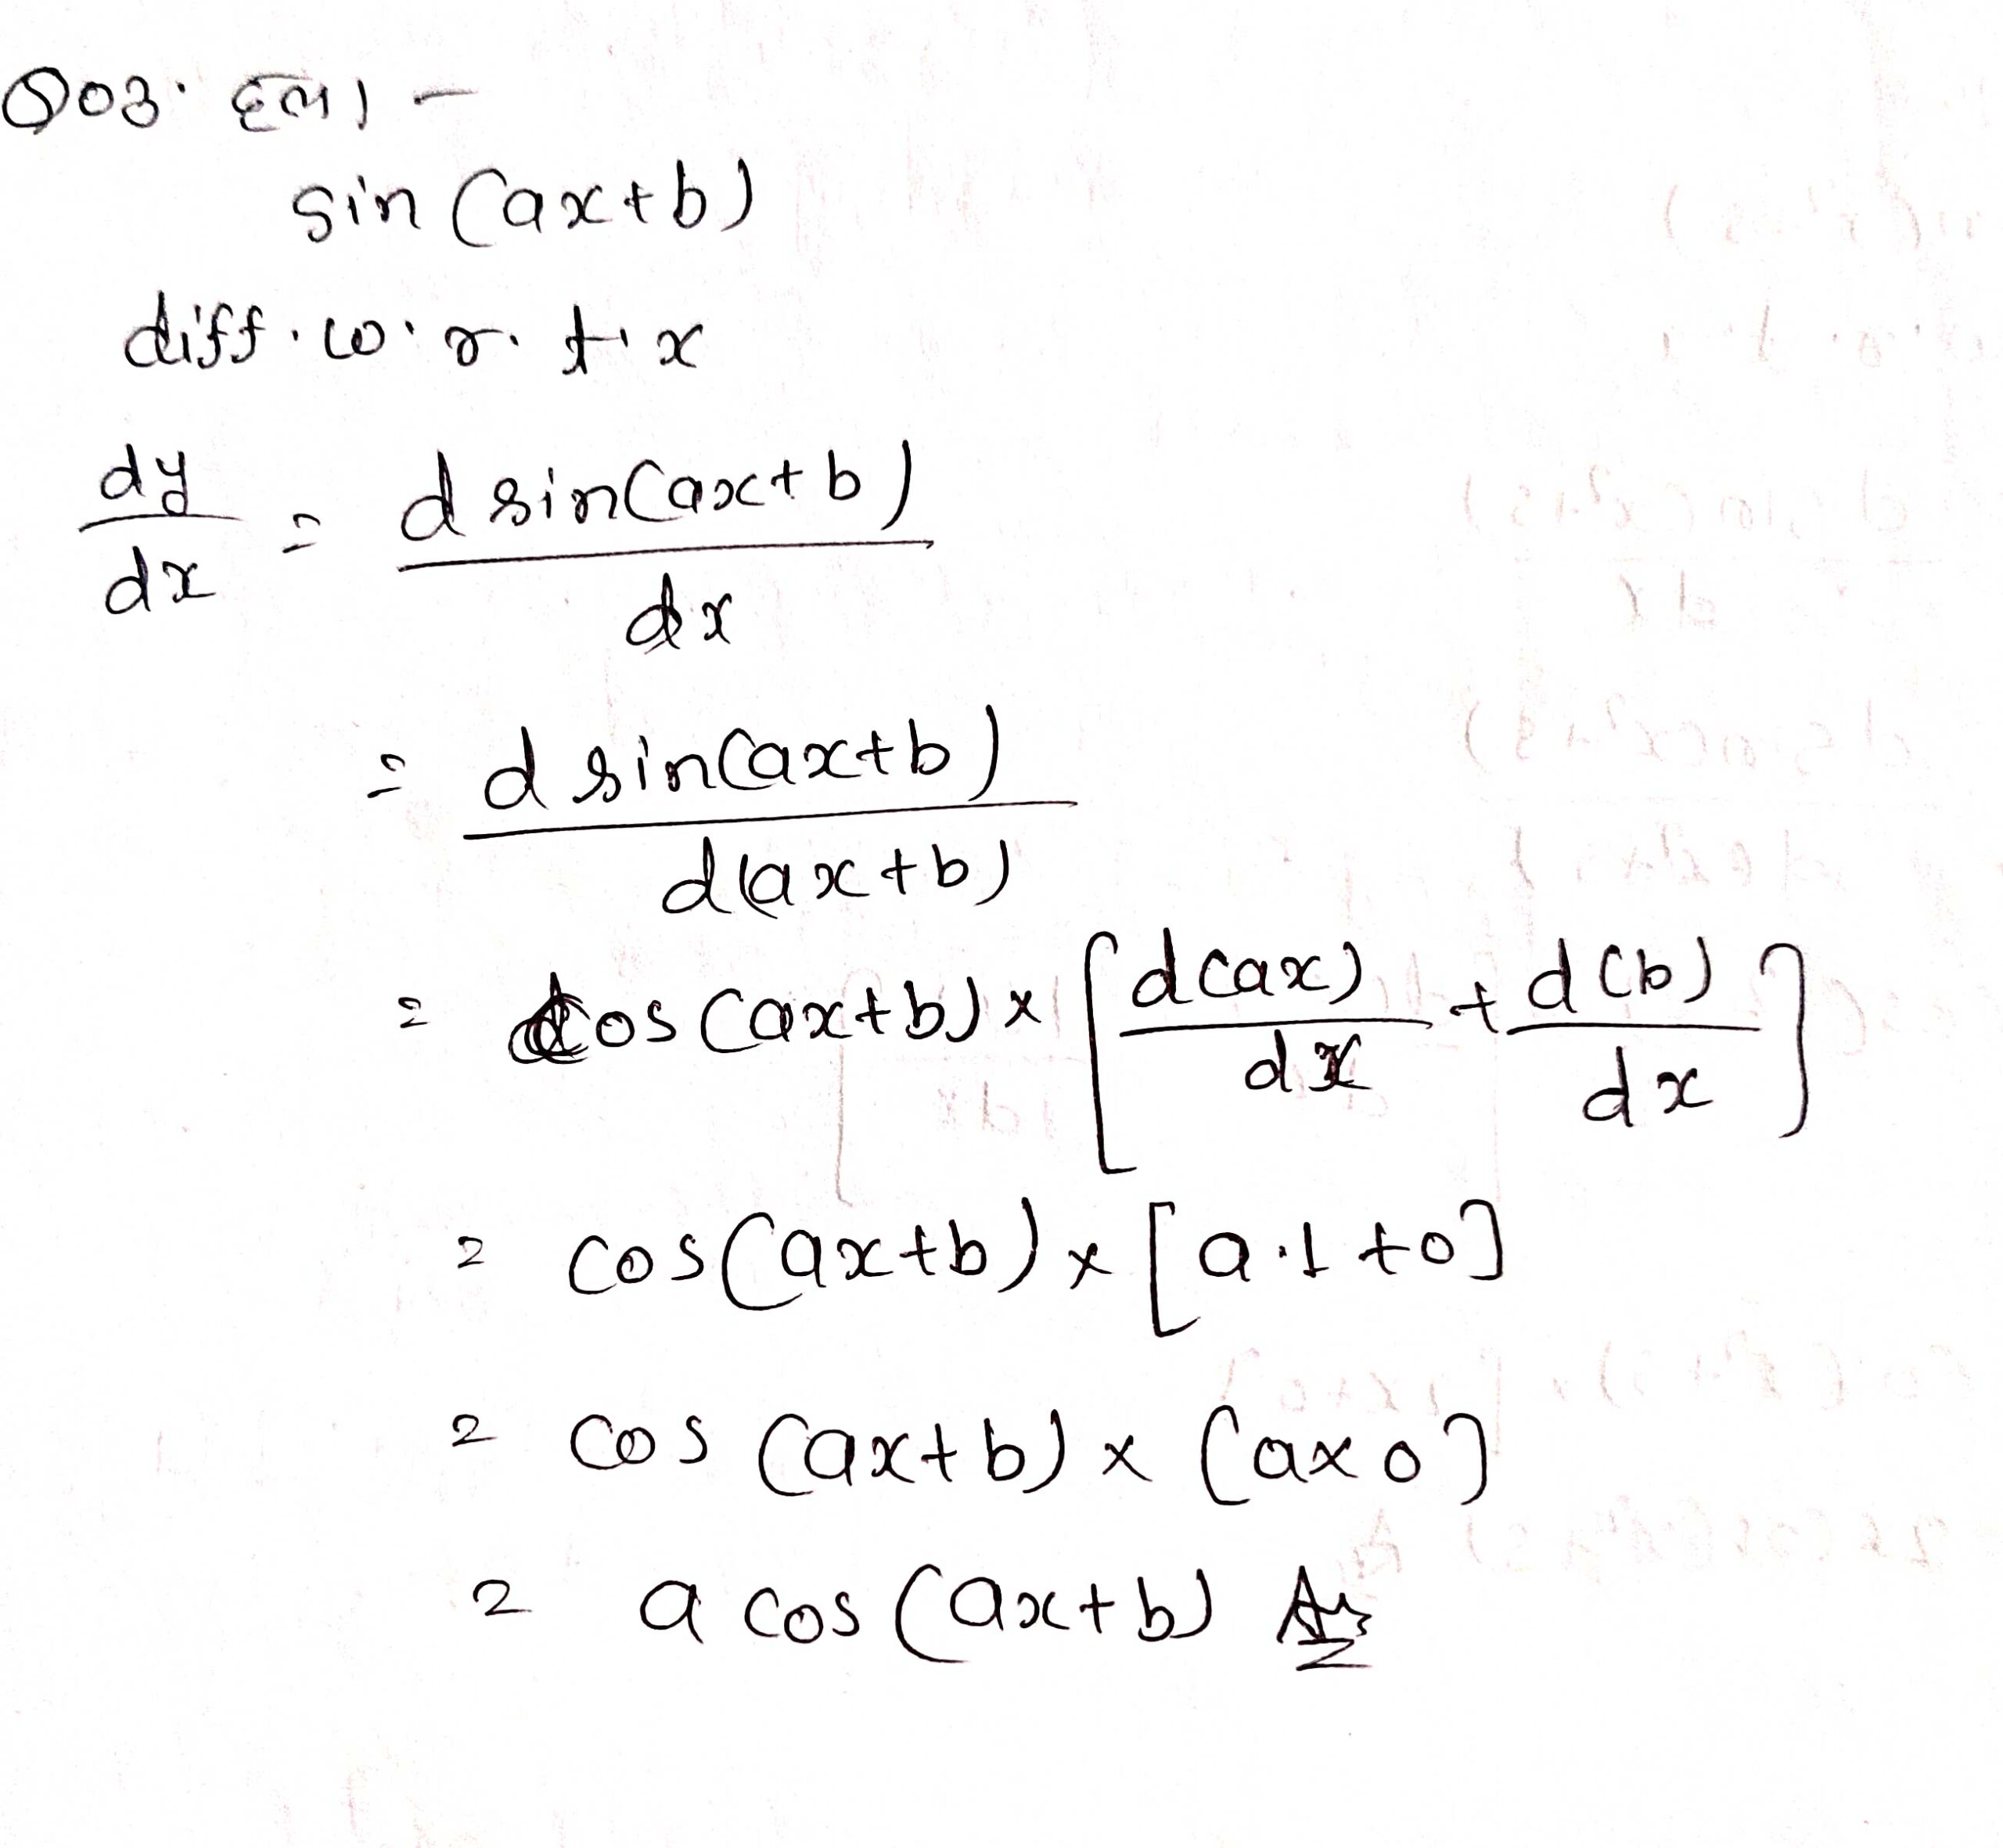 Q03. हल। -
sin (ax+b)
diff. w. r. t. x
dy/dx = d sin(ax+b)/dx
= d sin(ax+b)/d(ax+b)
= cos (ax+b) x [d(ax)/dx + d(b)/dx]
= cos(ax+b) x [a.1 +0]
= cos (ax+b) x (ax0]
= a cos (ax+b) Ans